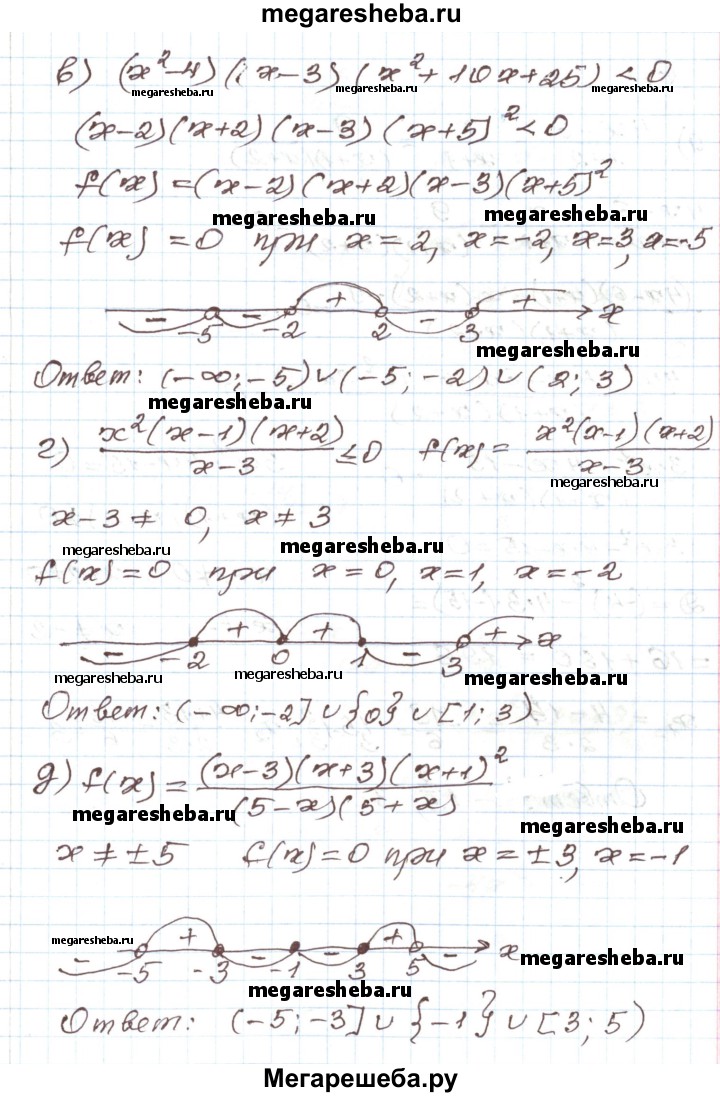 megaresheba.ru
в) (x²-4)(x-3)(x²+10x+25)<0
megaresheba.ru megaresheba.ru megaresheba.ru
(x-2)(x+2)(x-3)(x+5)²<0
f(x)=(x-2)(x+2)(x-3)(x+5)²
megaresheba.ru megaresheba.ru
f(x)=0 при x=2, x=-2, x=3, x=-5
- - + - + x
-5 -2 2 3
megaresheba.ru
Ответ: (-∞;-5)∪(-5;-2)∪(2;3)
megaresheba.ru
г) x²(x-1)(x+2)/x-3 ≤0 f(x)= x²(x-1)(x+2)/x-3
megaresheba.ru
x-3≠0, x≠3
megaresheba.ru megaresheba.ru
f(x)=0 при x=0, x=1, x=-2
- + + - + x
-2 0 1 3
megaresheba.ru megaresheba.ru megaresheba.ru
Ответ: (-∞;-2]∪{0}∪[1;3)
д) f(x)= (x-3)(x+3)(x+1)²/(5-x)(5+x)
megaresheba.ru megaresheba.ru
x≠±5 f(x)=0 при x=±3, x=-1
megaresheba.ru
- + - - + - x
-5 -3 -1 3 5
megaresheba.ru
megaresheba.ru
Ответ: (-5;-3]∪{-1}∪[3;5)
Мегарешеба.ру